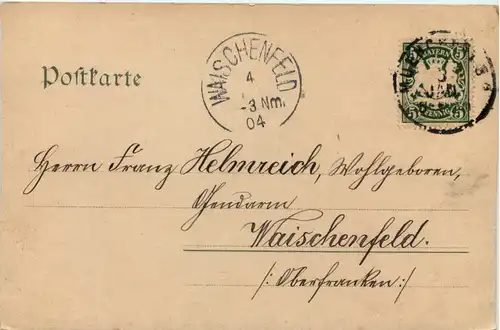 Postkarte
WAISCHENFELD
4
-3 Nm.
04
BAYERN
5 5
3
JAN.
5 PFENNIG 5
Herrn Franz Helmreich, Wohlgeboren,
Gendarm
Waischenfeld.
/: Oberfranken :/